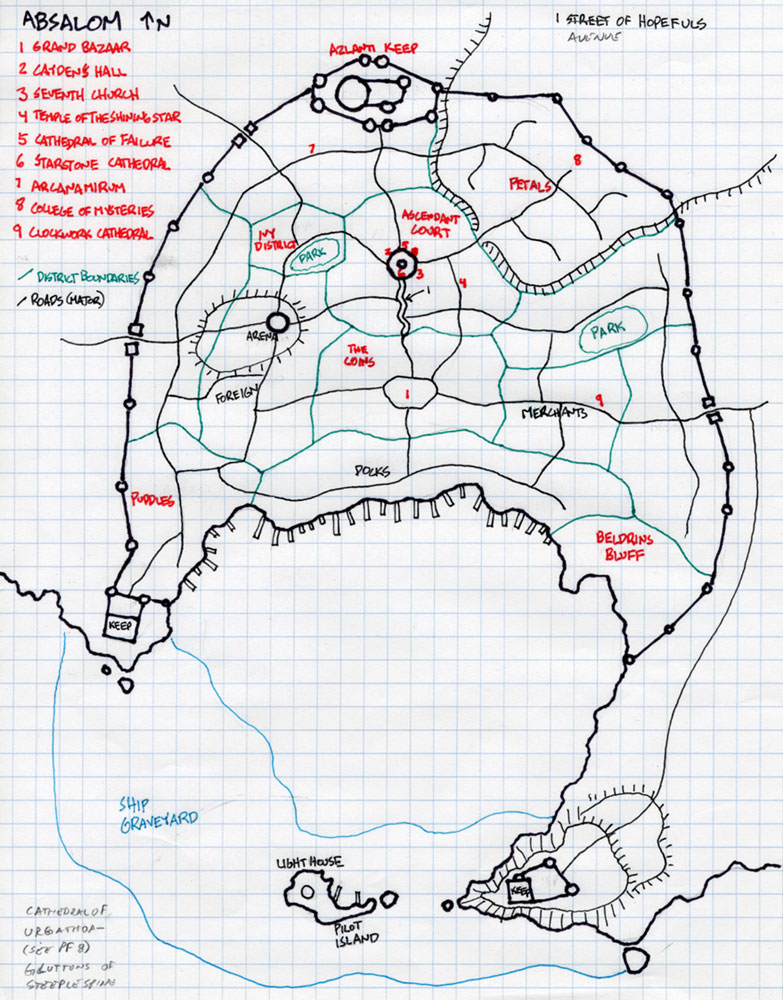 ABSALOM ↑N
1 GRAND BAZAAR
2 CAYDENS HALL
3 SEVENTH CHURCH
4 TEMPLE OF THE SHINING STAR
5 CATHEDRAL OF FAILURE
6 STARSTONE CATHEDRAL
7 ARCANAMIRUM
8 COLLEGE OF MYSTERIES
9 CLOCKWORK CATHEDRAL
/ DISTRICT BOUNDARIES
/ ROADS (MAJOR)
1 STREET OF HOPEFULS
AVENUE
AZLANTI KEEP
7
8
PETALS
IVY
DISTRICT
ASCENDANT
COURT
PARK
2
5
6
3
4
1
ARENA
PARK
THE
COINS
FOREIGN
1
MERCHANTS
9
DOCKS
PUDDLES
BELDRINS
BLUFF
KEEP
SHIP
GRAVEYARD
LIGHT HOUSE
PILOT
ISLAND
KEEP
CATHEDRAL OF
URGATHOA—
(SEE PF 8)
GLUTTONS OF
STEEPLESPINE